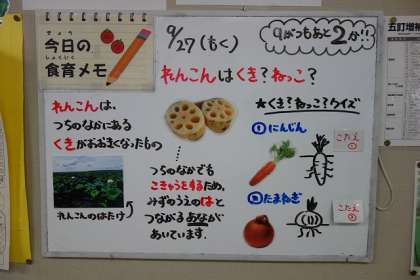 きょう
今日の
しょくいく
食育メモ
9/27(もく)
9がつもあと2か!!
れんこんはくき?ねっこ?
れんこんは、
つちのなかにある
くきがおおきくなったもの
れんこんのはたけ
つちのなかでも
こきゅうをするため、
みずのうえのはと
つながるあなが
あいています.
★くき?ねっこ?クイズ
①にんじん
こたえ
①
②たまねぎ
こたえ
五訂増補